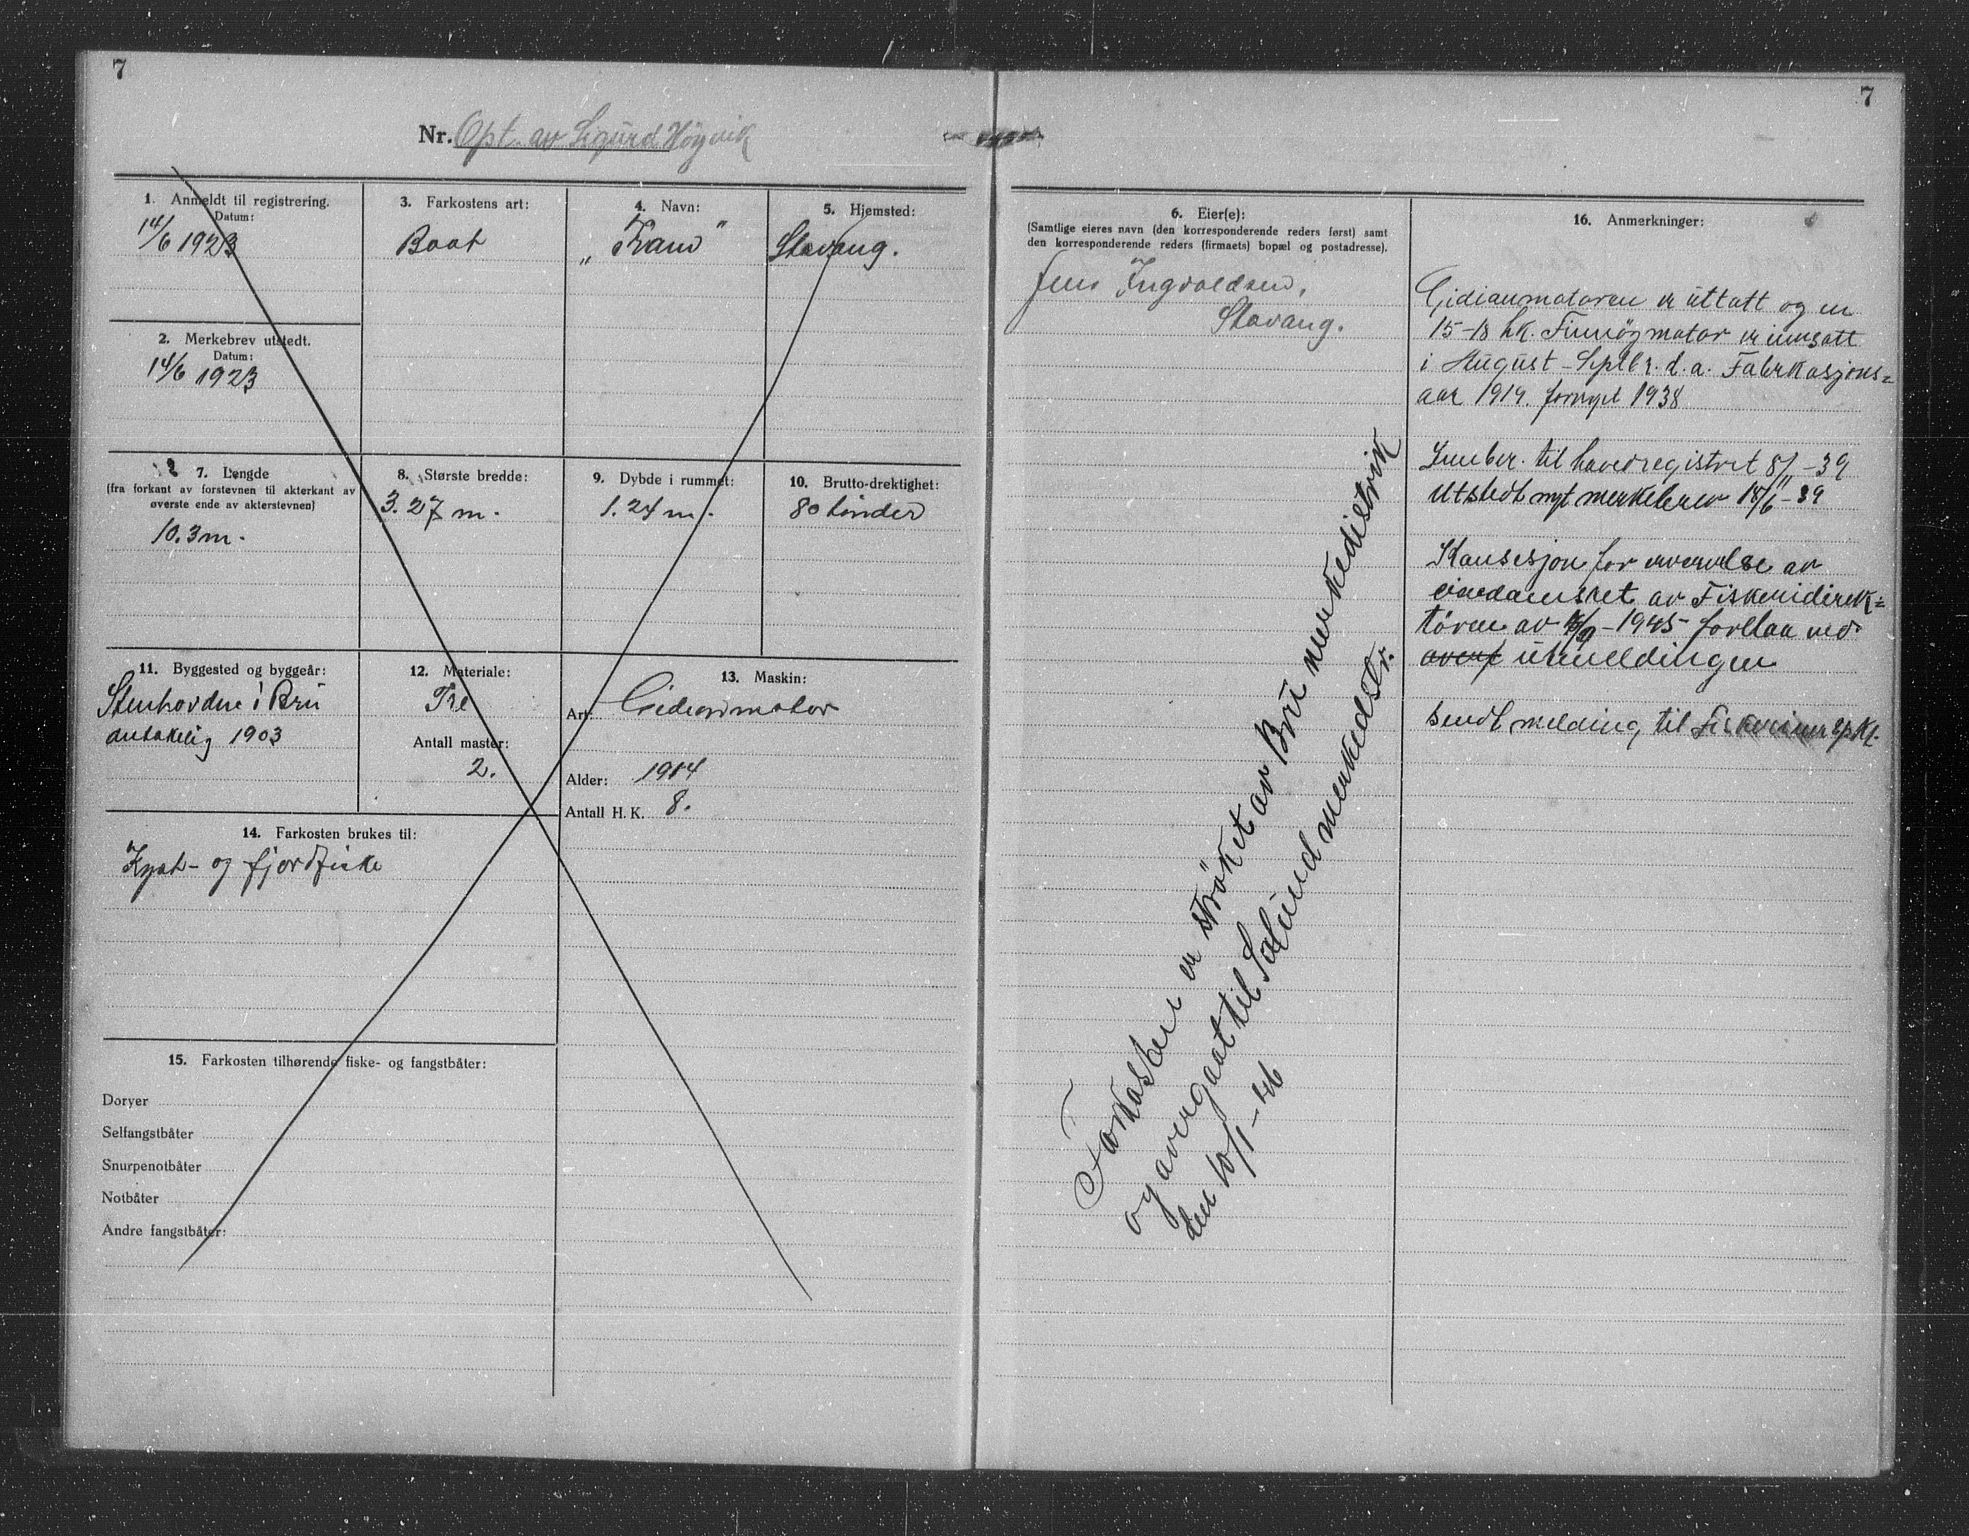 7
Nr. Opt. av Sigurd Høyvik
1. Anmeldt til registrering.
Datum:
14/6 1923
2. Merkebrev utstedt.
Datum:
14/6 1923
3. Farkostens art:
Baat
4. Navn:
„Fram"
5. Hjemsted:
Stavang.
7. Lengde
(fra forkant av forstevnen til akterkant av
øverste ende av akterstevnen)
10.3 m.
8. Største bredde:
3.27 m.
9. Dybde i rummet:
1.24 m.
10. Brutto-drektighet:
80 tønder
11. Byggested og byggeår:
i Bru
antakelig 1903
12. Materiale:
Tre
Antall master:
2.
13. Maskin:
Art: Gideonmotor
Alder: 1914
Antall H. K. 8.
14. Farkosten brukes til:
Kyst- og fjordfiske
15. Farkosten tilhørende fiske- og fangstbåter:
Doryer
Selfangstbåter
Snurpenotbåter
Notbåter
Andre fangstbåter:
7
6. Eier(e):
(Samtlige eieres navn (den korresponderende reders først) samt
den korresponderende reders (firmaets) bopæl og postadresse).
Jens Ingvaldsen,
Stavang.
Farkosten er strøket av Bru merkedistrik
og overgaat til Solund merkedistr.
den 10/1-46
16. Anmerkninger:
Gidianmotoren er uttatt og en
15-18 hk. Finnøymotor er innsatt
i August-Septbr. d.a. Fabrkasjons=
aar 1919. fornyet 1938
Innber. til hovedregistret 8/11-39
Utstedt nytt merkebrev 18/6-39
Konsesjon for ervervelse av
eiendomsret av Fiskeridirek=
tøren av -1945 forelaa ved
utmeldingen
Sendt melding til